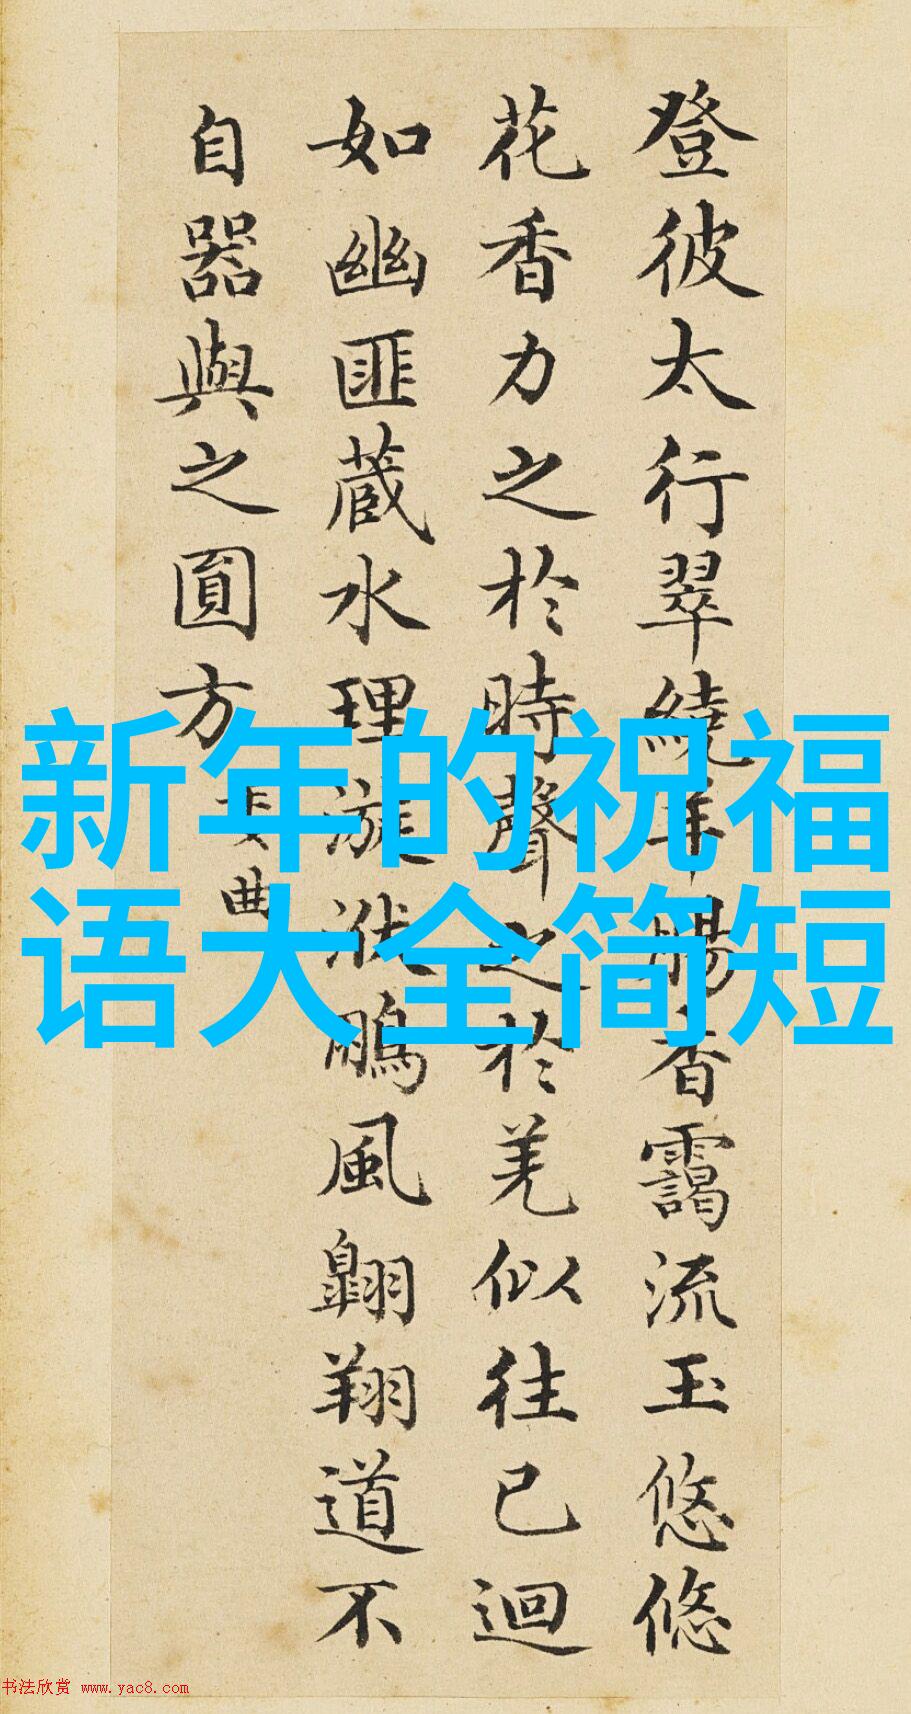 登彼太行翠繞羊腸杳靄流玉悠悠
花香力之於時聲之於羌似往已迴
如幽匪蔵水理漩洑鵬風翶翔道不
自器與之圓方
委曲
新年的祝福
语大全简短
书法欣赏 www.yac8.com